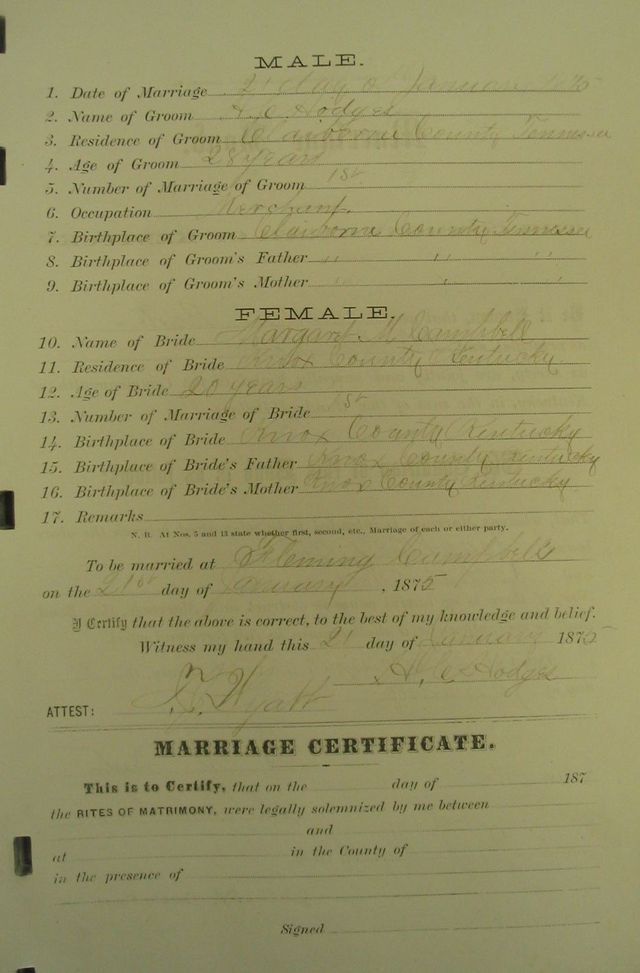 MALE.
1. Date of Marriage 21 day of January 1875
2. Name of Groom H. C. Hodges
3. Residence of Groom Claiborne County Tennessee
4. Age of Groom 28 years
5. Number of Marriage of Groom 1st
6. Occupation Merchant
7. Birthplace of Groom Claiborne County Tennessee
8. Birthplace of Groom's Father " " "
9. Birthplace of Groom's Mother " " "
FEMALE.
10. Name of Bride Margaret M. Campbell
11. Residence of Bride Knox County Kentucky
12. Age of Bride 20 years
13. Number of Marriage of Bride 1st
14. Birthplace of Bride Knox County Kentucky
15. Birthplace of Bride's Father Knox County Kentucky
16. Birthplace of Bride's Mother Knox County Kentucky
17. Remarks
N. B. At Nos. 5 and 13 state whether first, second, etc., Marriage of each or either party.
To be married at Fleming Campbells
on the 21st day of January, 1875
I Certify that the above is correct, to the best of my knowledge and belief.
Witness my hand this 21 day of January 1875
H. C. Hodges
ATTEST: Hyatt
MARRIAGE CERTIFICATE.
This is to Certify, that on the day of 187
the RITES OF MATRIMONY, were legally solemnized by me between
and
at in the County of
in the presence of
Signed